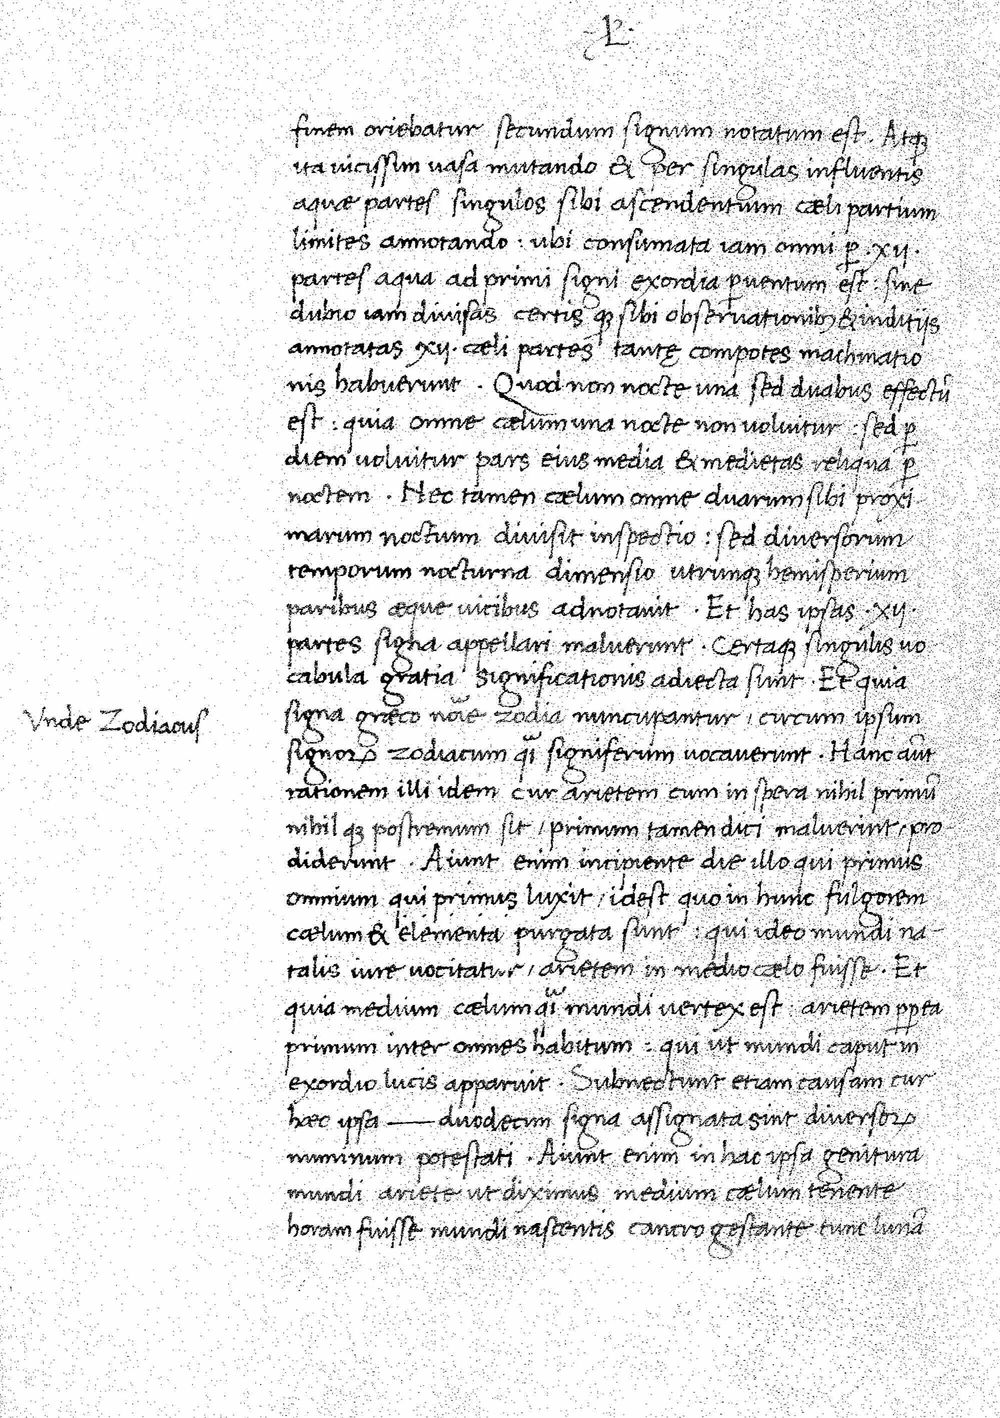 finem oriebatur secundum signum notatum est. Atqꝫ
ita uicissim uasa mutando & per singulas influentis
aquæ partes singulos sibi ascendentium cæli partium
limites annotando : ubi consumata iam omni ꝑ .xij.
partes aqua ad primi signi exordia ꝑuentum est : sine
dubio iam diuisas certis qꝫ sibi obseruationibꝫ & inditijs
annotatas xij. cæli partes tantę compotes machinatio
nis habuerunt . Quod non nocte una sed duabus effectū
est : quia omne cælum una nocte non uoluitur : sed ꝑ
diem uoluitur pars eius media & medietas reliqua ꝑ
noctem . Nec tamen cælum omne duarum sibi proxi
marum noctium diuisit inspectio : sed diuersorum
temporum nocturna dimensio utrunqꝫ hemisperium
paribus æque uicibus adnotauit . Et has ipsas .xij.
partes signa appellari maluerunt . Certaqꝫ singulis uo
cabula gratia significationis adiecta sunt . Et quia
Vnde Zodiacus
signa græco noı̄e zodia nuncupantur / circum ipsum
signoꝝ zodiacum q̄i signiferum uocauerunt . Hanc aūt
rationem illi idem cur arietem cum in spera nihil primū
nihil qꝫ postremum sit / primum tamen dici maluerint / pro
diderunt . Aiunt enim incipiente die illo qui primus
omnium qui primus luxit / idest quo in hunc fulgorem
cælum & elementa purgata sunt : qui ideo mundi na-
talis iure uocitatur / arietem in medio cælo fuisse . Et
quia medium cælum q̄i mundi uertex est : arietem ꝓpterea
primum inter omnes habitum : qui ut mundi caput in
exordio lucis apparuit . Subnectunt etiam causam cur
hæc ipsa — duodecim signa assignata sint diuersoꝝ
numinum potestati . Aiunt enim in hac ipsa genitura
mundi ariete ut diximus medium cælum tenente
horam fuisse mundi nascentis cancro gestante tunc lunā